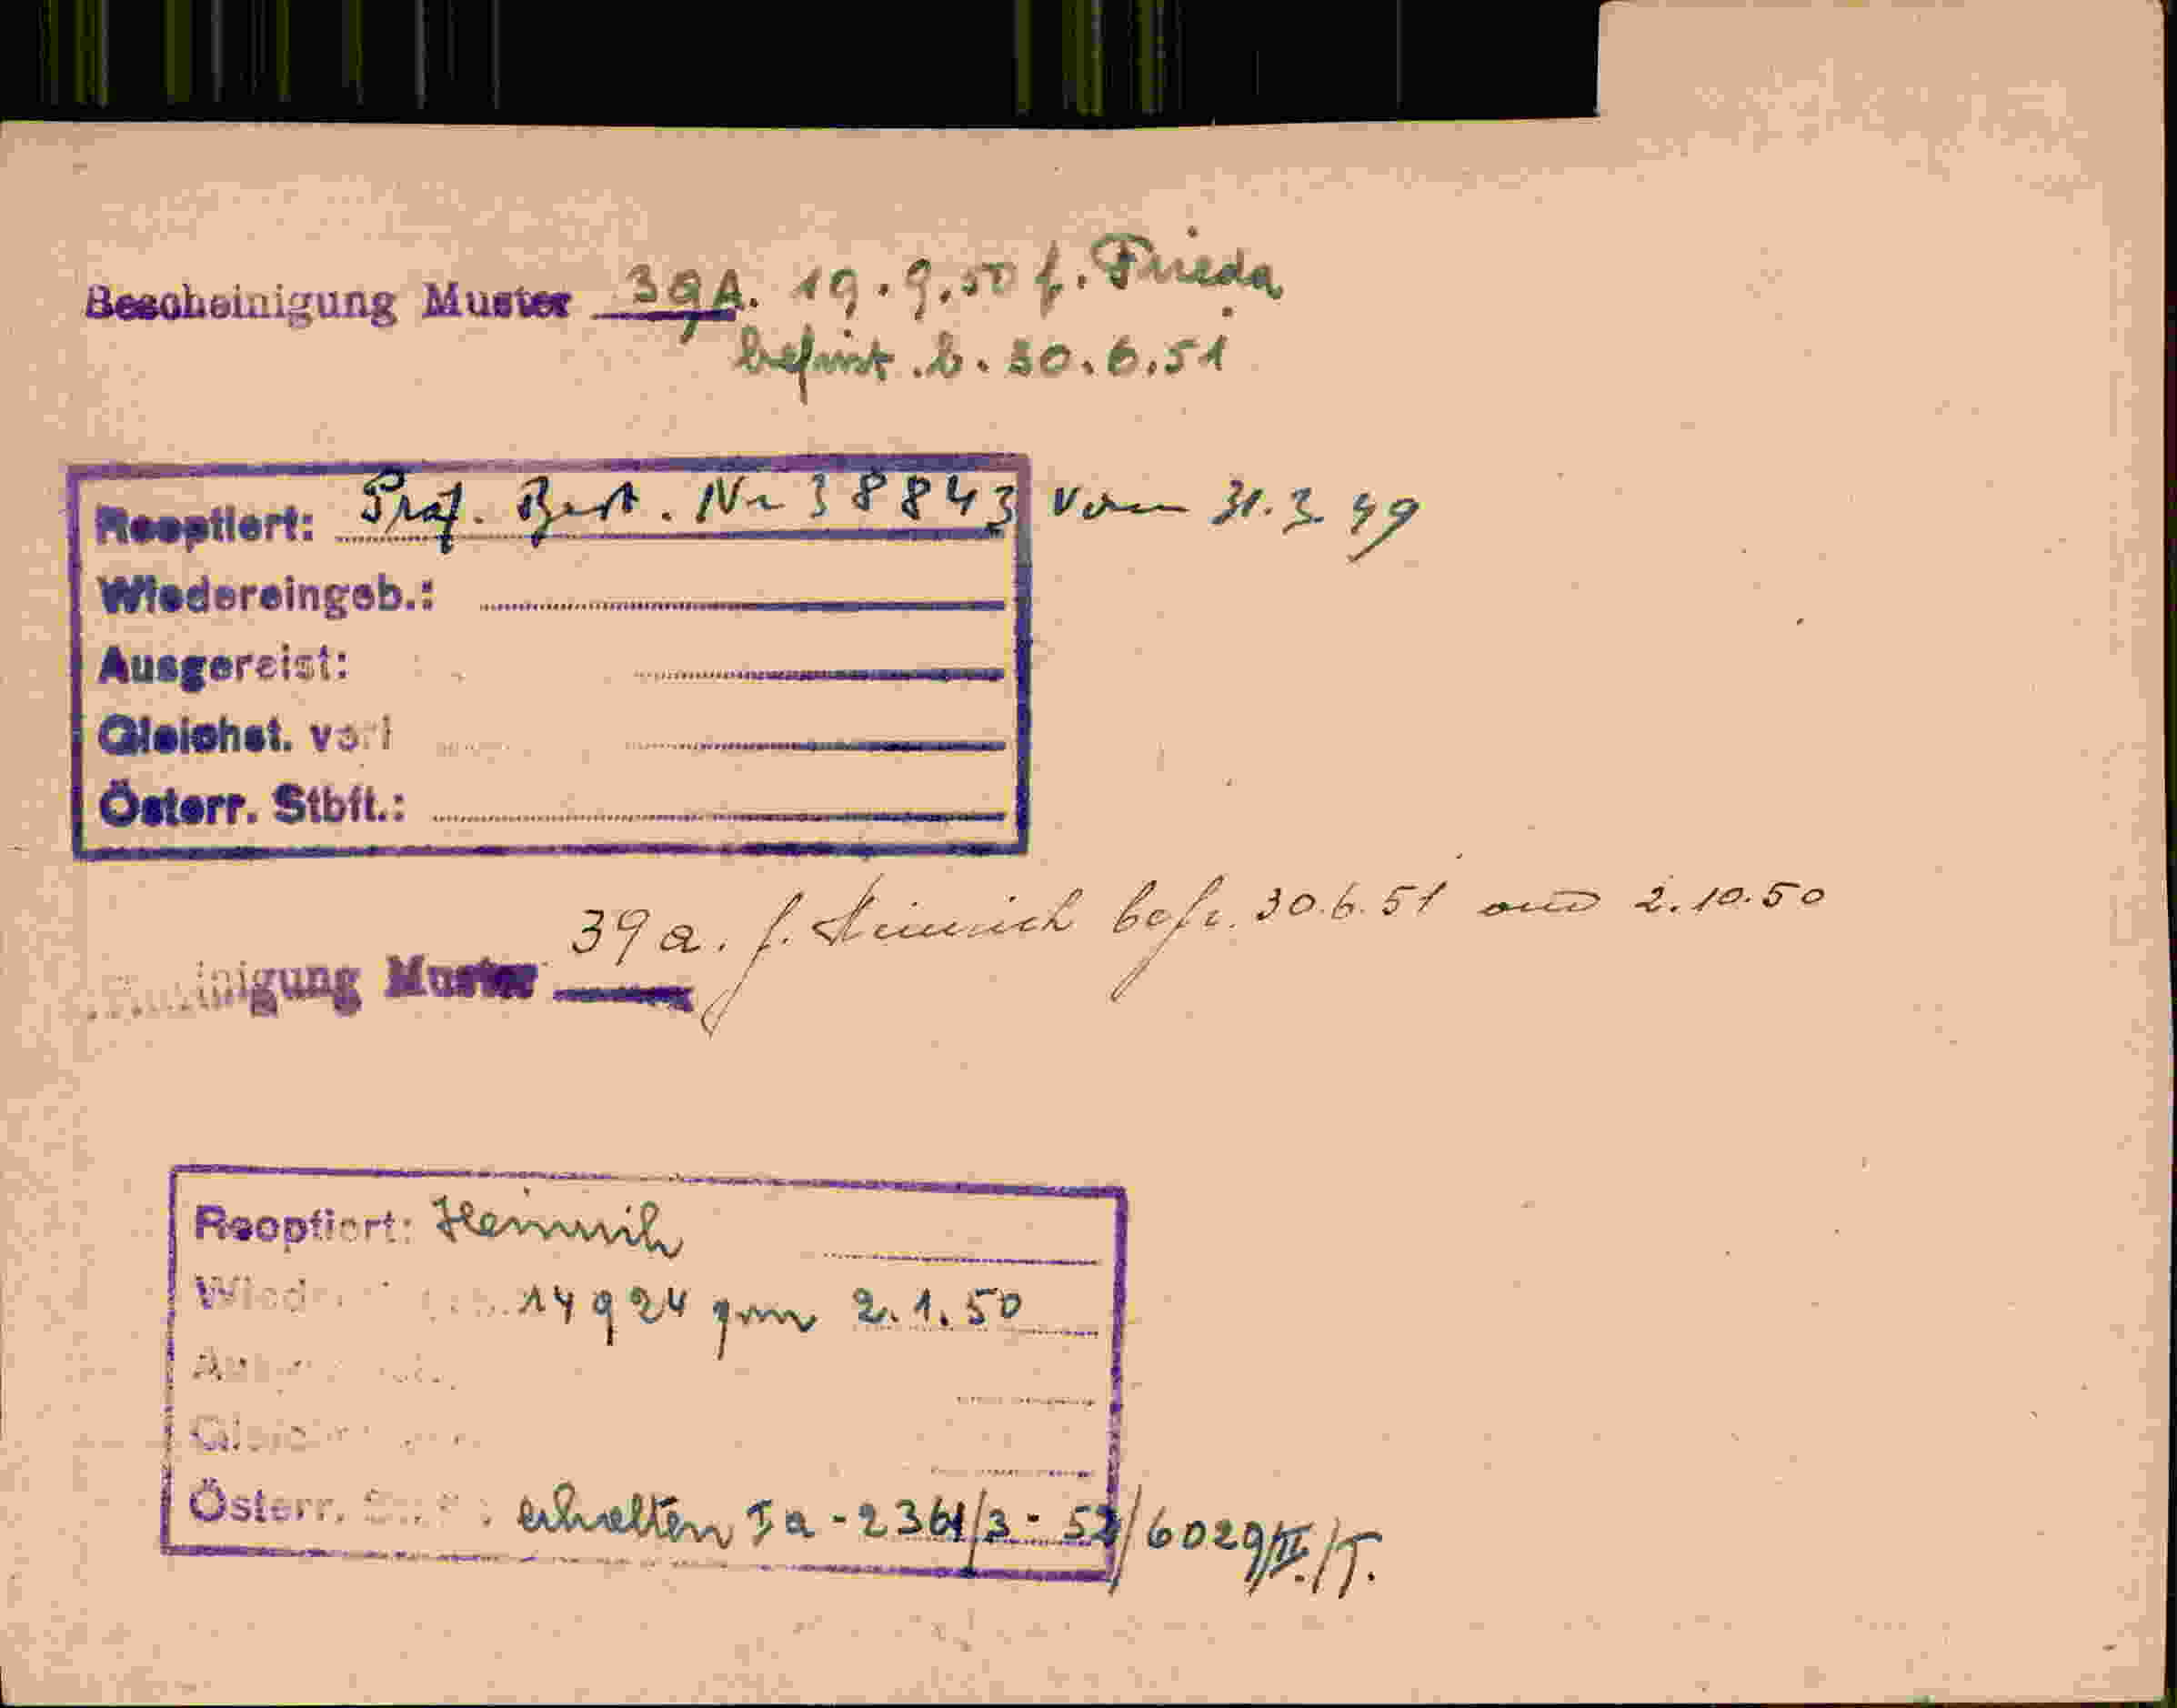 Bescheinigung Muster 39A. 19.9.50 f. Frieda
befrist. b. 30.6.51
Reoptiert: Präf. Best. Nr 38843 vom 31.3.49
Wiedereingeb.:
Ausgereist:
Gleichst. vorl
Österr. Stbft.:
39a. f. Heinrich befr. 30.6.51 2.10.50
inigung Muster
Reoptiert: Heinrich
14924 vom 2.1.50
Österr. erhalten Ia-2361/3-52/6029/II./T.